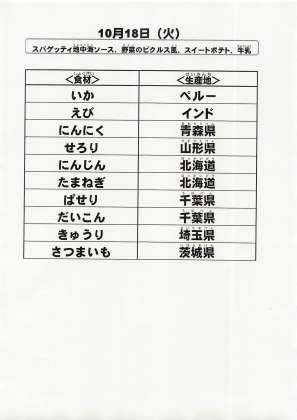 10月18日（火）
スパゲッティ地中海ソース、野菜のピクルス風、スイートポテト、牛乳
＜食材＞ ＜生産地＞
いか ペルー
えび インド
にんにく 青森県
せろり 山形県
にんじん 北海道
たまねぎ 北海道
ぱせり 千葉県
だいこん 千葉県
きゅうり 埼玉県
さつまいも 茨城県